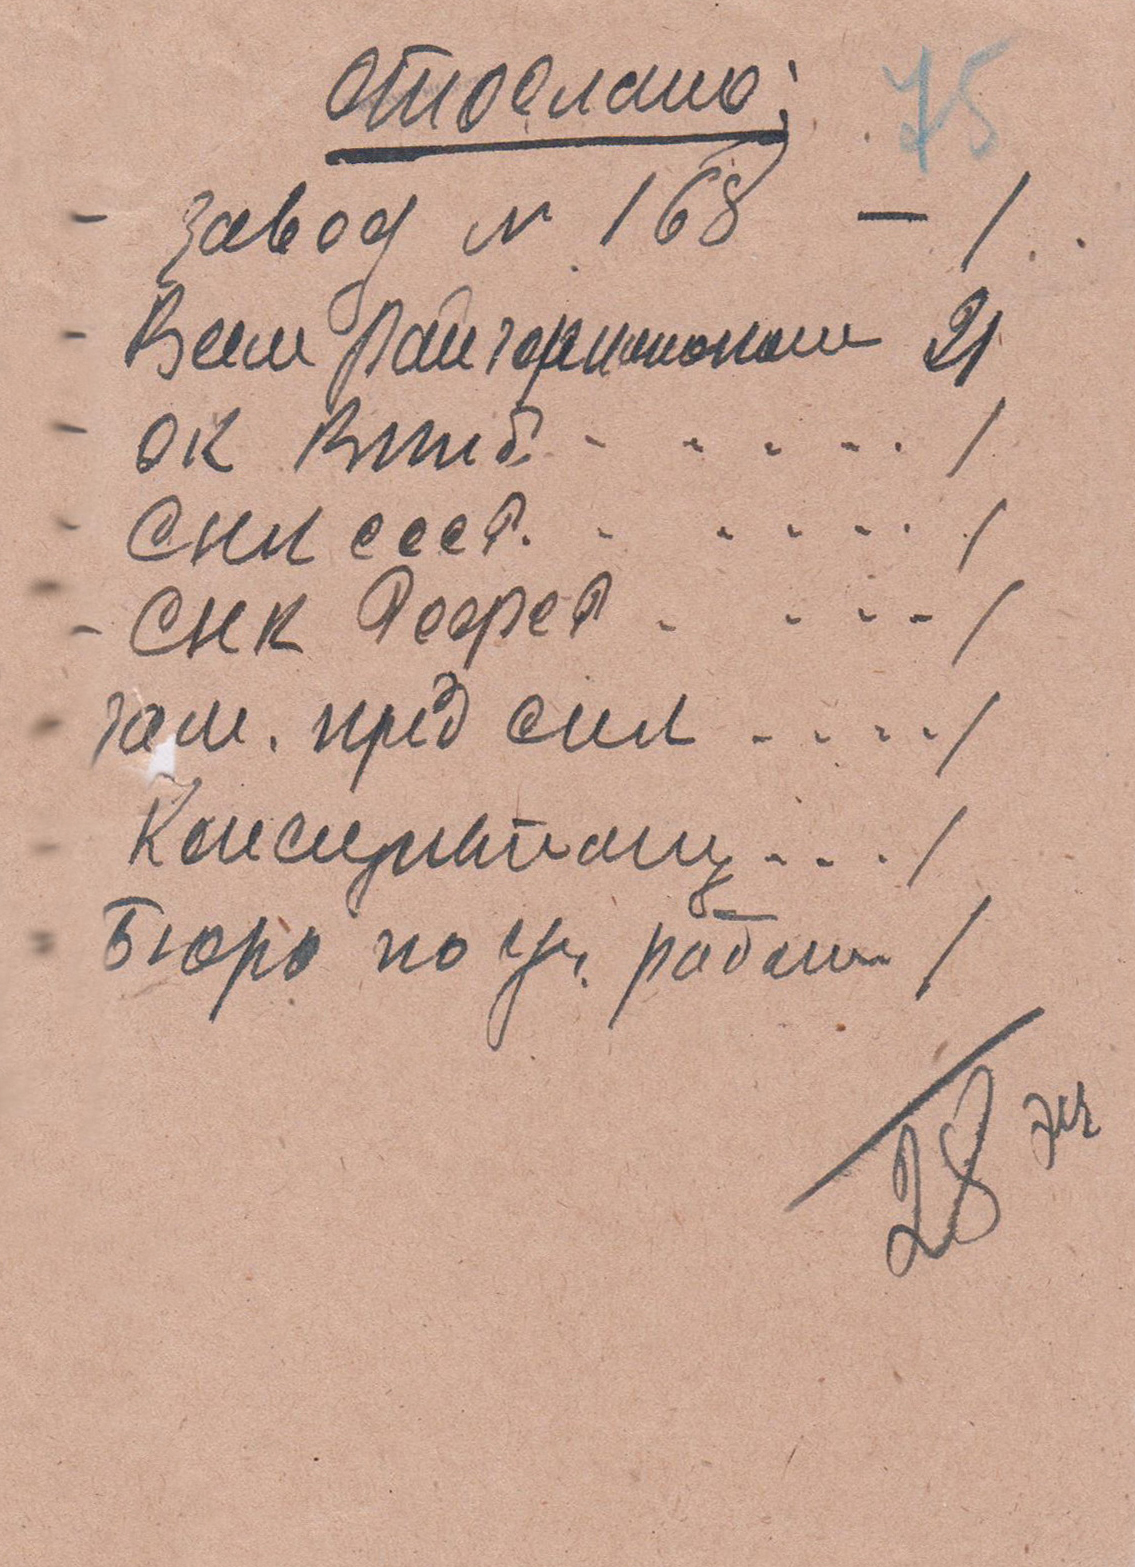 Отослано:
75
- Завод № 168 — 1
- Всем Райгорисполкомам 21
- ОК ВКПб - - - - - 1
- СНК СССР. - - - - - 1
- СНК РСФСР - - - - 1
Зам. пред СНК - - - - 1
Консультанту - - - 1
Бюро по уч. рабсил 1
28 эк